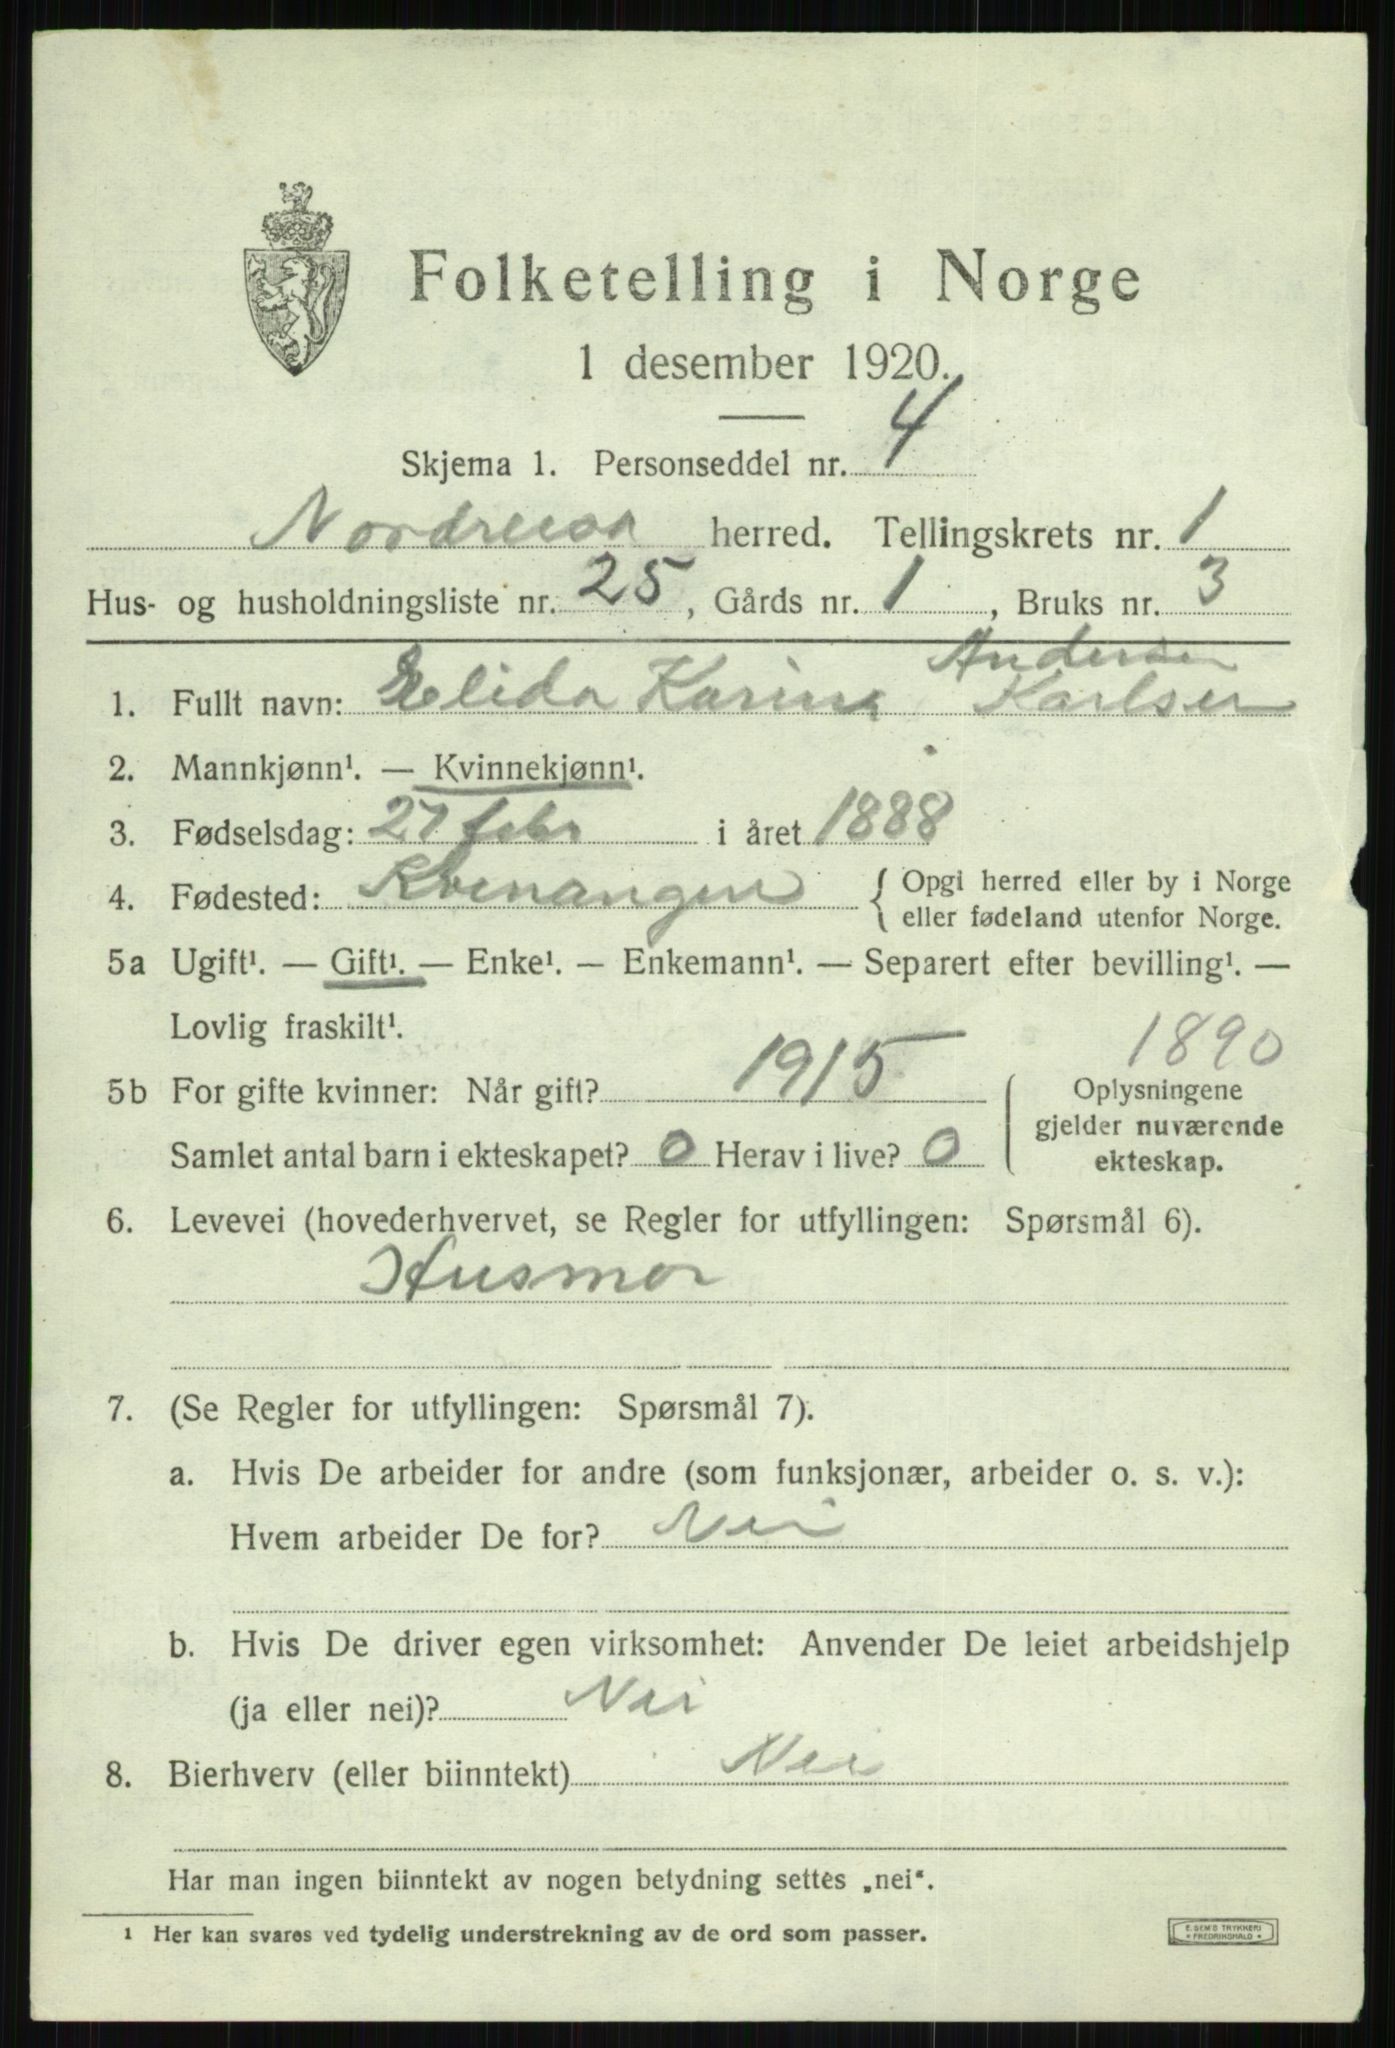 Folketelling i Norge
1 desember 1920.
Skjema 1. Personseddel nr. 4
Nordreisa herred. Tellingskrets nr. 1
Hus- og husholdningsliste nr. 25, Gårds nr. 1, Bruks nr. 3
Andersen
1. Fullt navn: Elida Karine Karlsen
2. Mannkjønn¹. — Kvinnekjønn¹.
3. Fødselsdag: 27 febr i året 1888
4. Fødested: Kvenangen { Opgi herred eller by i Norge
eller fødeland utenfor Norge.
5a Ugift¹. — Gift¹. — Enke¹. — Enkemann¹. — Separert efter bevilling¹. —
Lovlig fraskilt¹.
1890
5b For gifte kvinner: Når gift? 1915 Oplysningene
gjelder nuværende
Samlet antal barn i ekteskapet? 0 Herav i live? 0 ekteskap.
6. Levevei (hovederhvervet, se Regler for utfyllingen: Spørsmål 6).
Husmor
7. (Se Regler for utfyllingen: Spørsmål 7).
a. Hvis De arbeider for andre (som funksjonær, arbeider o. s. v.):
Hvem arbeider De for? Nei
b. Hvis De driver egen virksomhet: Anvender De leiet arbeidshjelp
(ja eller nei)? Nei
8. Bierhverv (eller biinntekt) Nei
Har man ingen biinntekt av nogen betydning settes „nei“.
¹ Her kan svares ved tydelig understrekning av de ord som passer.
E. SEM'S TRYKKERI
* FREDRIKSHALD *